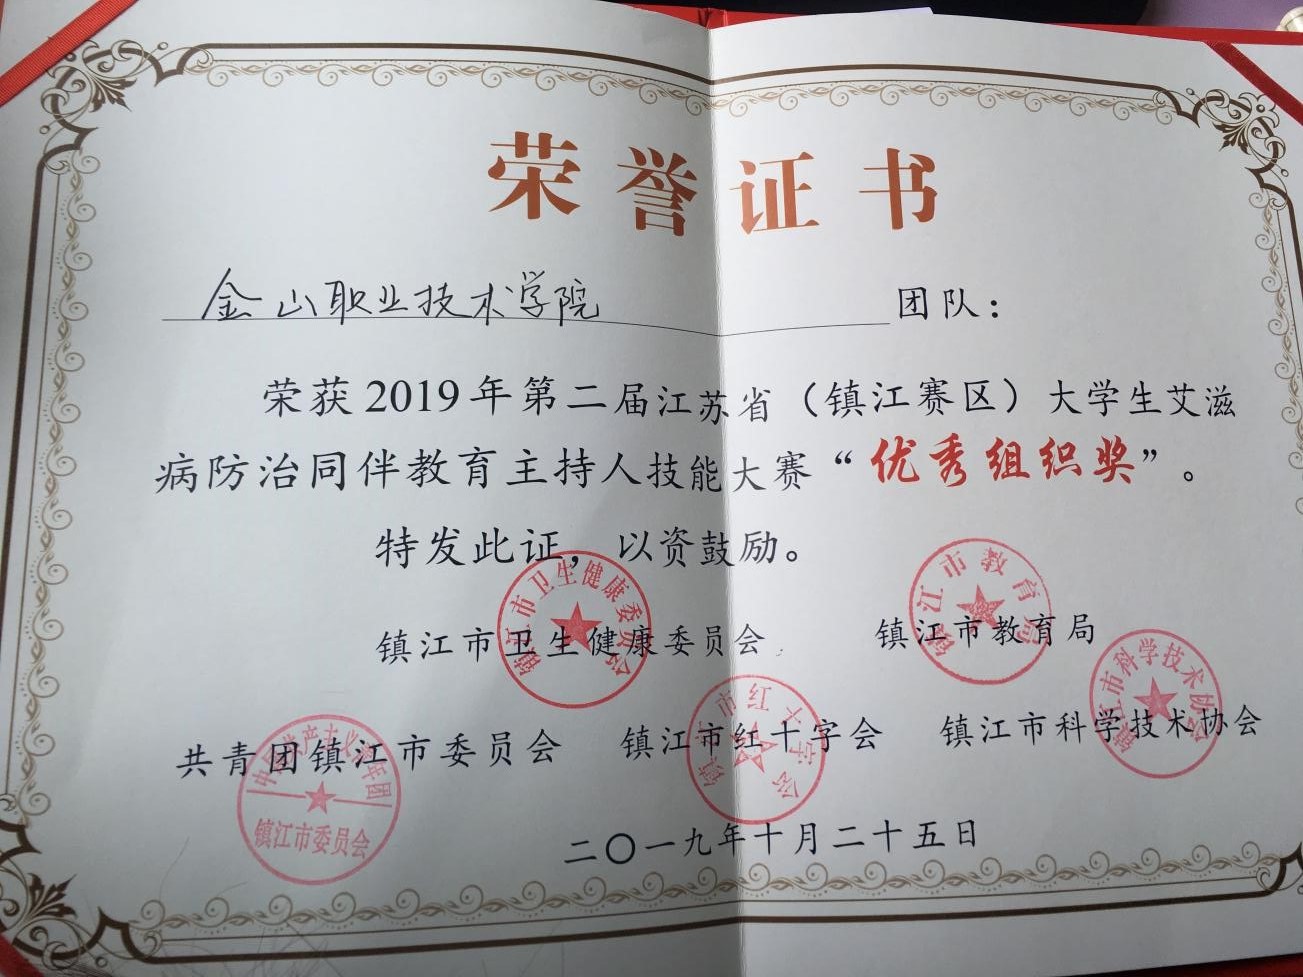 荣誉证书
金山职业技术学院 团队：
荣获2019年第二届江苏省（镇江赛区）大学生艾滋
病防治同伴教育主持人技能大赛“优秀组织奖”。
特发此证，以资鼓励。
镇江市卫生健康委员会 镇江市教育局
共青团镇江市委员会 镇江市红十字会 镇江市科学技术协会
二〇一九年十月二十五日
镇江市卫生健康委员会
镇江市教育局
镇江市科学技术协会
镇江市红十字会
中国共产主义青年团
镇江市委员会